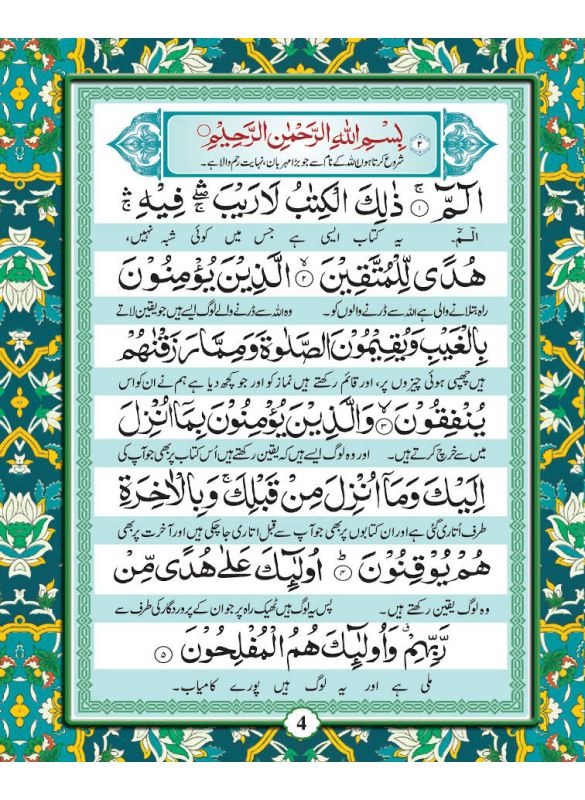 بِسْمِ اللّٰهِ الرَّحْمٰنِ الرَّحِيْمِ ○
۲
شروع کرتا ہوں اللہ کے نام سے جو بڑا مہربان، نہایت رحم والا ہے۔
الٓمّٓ ۚ ۝۱ ذٰلِكَ الْكِتٰبُ لَا رَيْبَ ۛۖ فِيْهِ ۛۚ
الٓمّٓ۔ یہ کتاب ایسی ہے جس میں کوئی شبہ نہیں،
هُدًى لِّلْمُتَّقِيْنَ ۙ ۝۲ الَّذِيْنَ يُؤْمِنُوْنَ
راہ بتلانے والی ہے اللہ سے ڈرنے والوں کو۔ وہ اللہ سے ڈرنے والے لوگ ایسے ہیں جو یقین لاتے
بِالْغَيْبِ وَيُقِيْمُوْنَ الصَّلٰوةَ وَمِمَّا رَزَقْنٰهُمْ
ہیں چھپی ہوئی چیزوں پر، اور قائم رکھتے ہیں نماز کو اور جو کچھ دیا ہے ہم نے ان کو اس
يُنْفِقُوْنَ ۙ ۝۳ وَالَّذِيْنَ يُؤْمِنُوْنَ بِمَآ اُنْزِلَ
میں سے خرچ کرتے ہیں۔ اور وہ لوگ ایسے ہیں کہ یقین رکھتے ہیں اُس کتاب پر بھی جو آپ کی
اِلَيْكَ وَمَآ اُنْزِلَ مِنْ قَبْلِكَ ۚ وَبِالْاٰخِرَةِ
طرف اُتاری گئی ہے اور ان کتابوں پر بھی جو آپ سے قبل اتاری جا چکی ہیں اور آخرت پر بھی
هُمْ يُوْقِنُوْنَ ؕ ۝۴ اُولٰٓئِكَ عَلٰى هُدًى مِّنْ
وہ لوگ یقین رکھتے ہیں۔ پس یہ لوگ ہیں ٹھیک راہ پر جو ان کے پروردگار کی طرف سے
رَّبِّهِمْ ۗ وَاُولٰٓئِكَ هُمُ الْمُفْلِحُوْنَ ۝۵
ملی ہے اور یہ لوگ ہیں پورے کامیاب۔
4